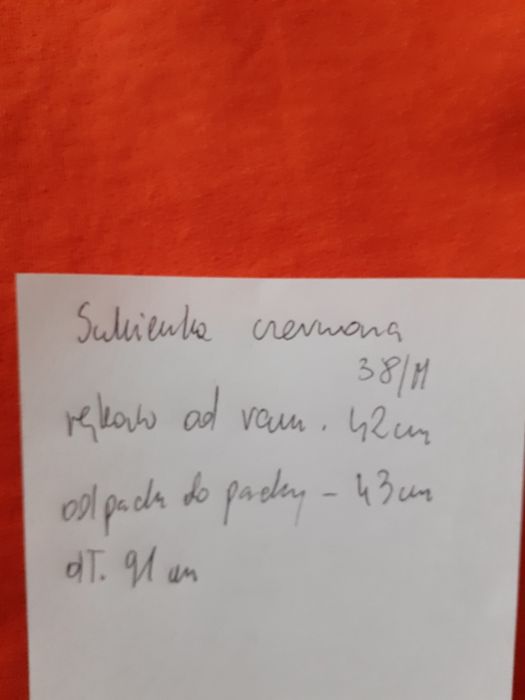 Sukienka czerwona
38/M
rękaw od ram. 42cm
od pach do pachy - 43cm
dł. 91 cm